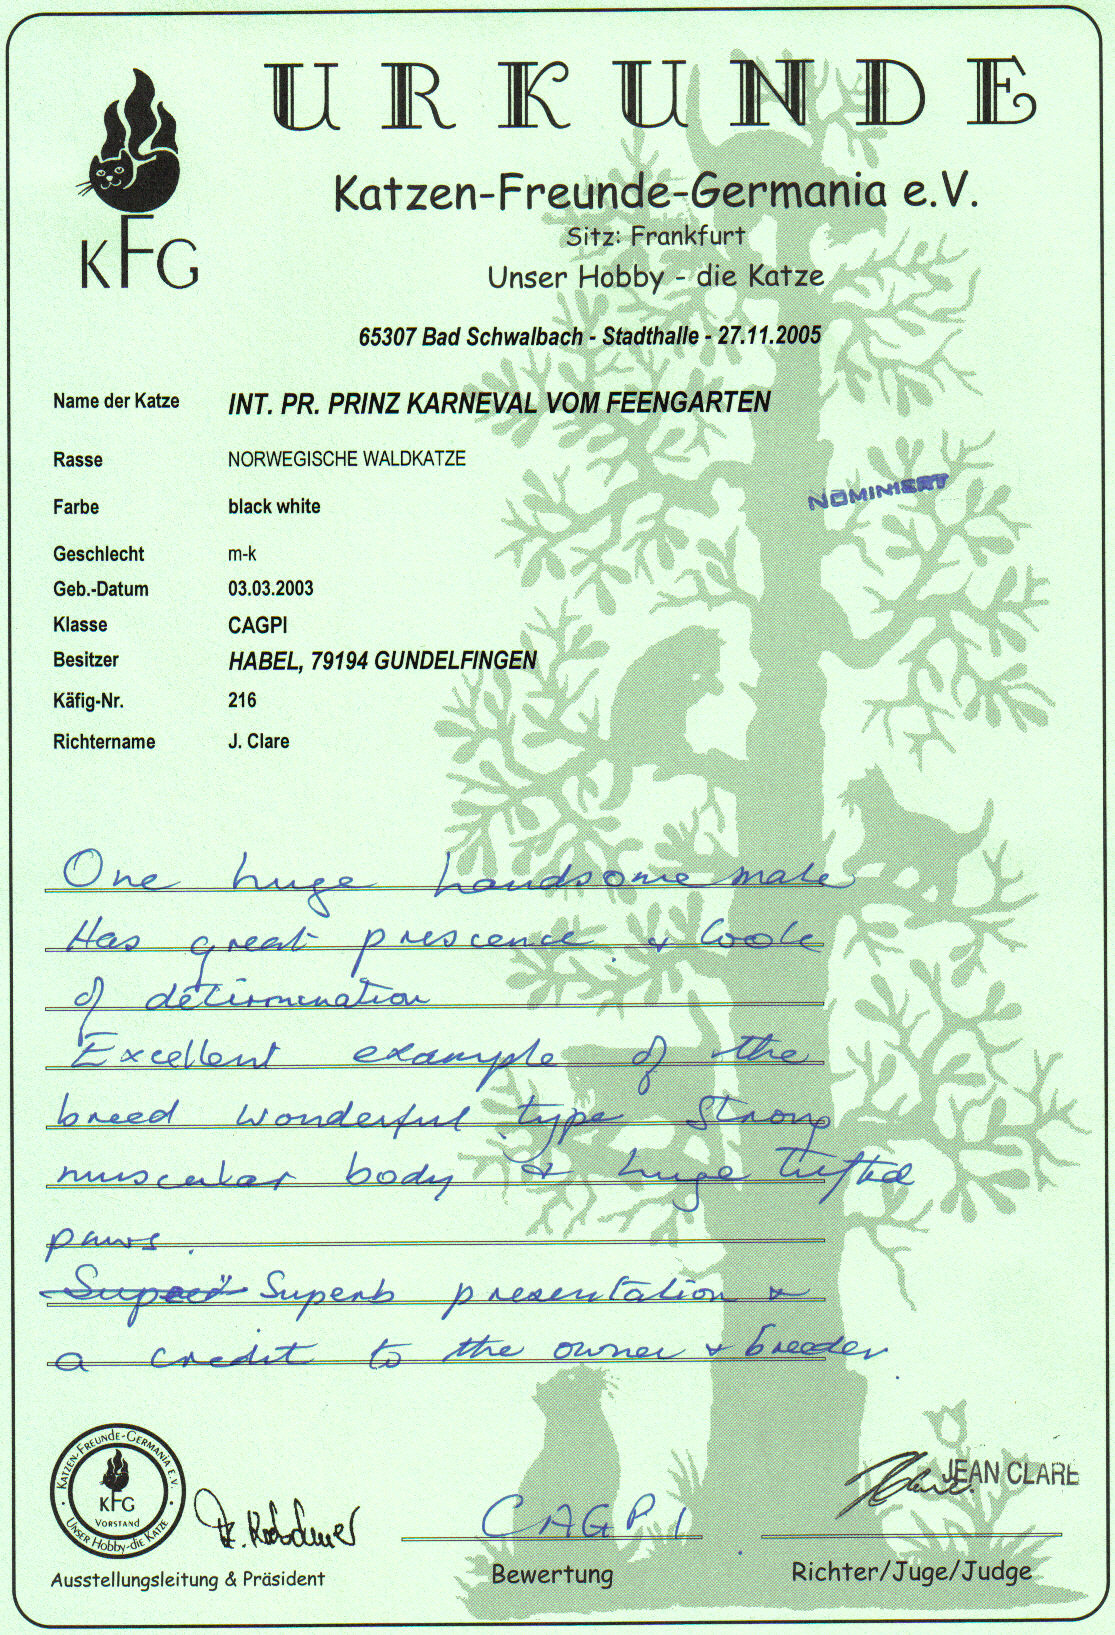 URKUNDE
KFG
Katzen-Freunde-Germania e.V.
Sitz: Frankfurt
Unser Hobby - die Katze
65307 Bad Schwalbach - Stadthalle - 27.11.2005
Name der Katze INT. PR. PRINZ KARNEVAL VOM FEENGARTEN
Rasse NORWEGISCHE WALDKATZE
NOMINIERT
Farbe black white
Geschlecht m-k
Geb.-Datum 03.03.2003
Klasse CAGPI
Besitzer HABEL, 79194 GUNDELFINGEN
Käfig-Nr. 216
Richtername J. Clare
One huge handsome male
Has great prescence & look
of determination
Excellent example of the
breed wonderful type Strong
muscular body & huge tufted
paws.
Superb presentation &
a credit to the owner & breeder
KATZEN-FREUNDE-GERMANIA E.V.
KFG
VORSTAND
UNSER HOBBY-DIE KATZE
JEAN CLARE
CAGPI
Ausstellungsleitung & Präsident
Bewertung
Richter/Juge/Judge